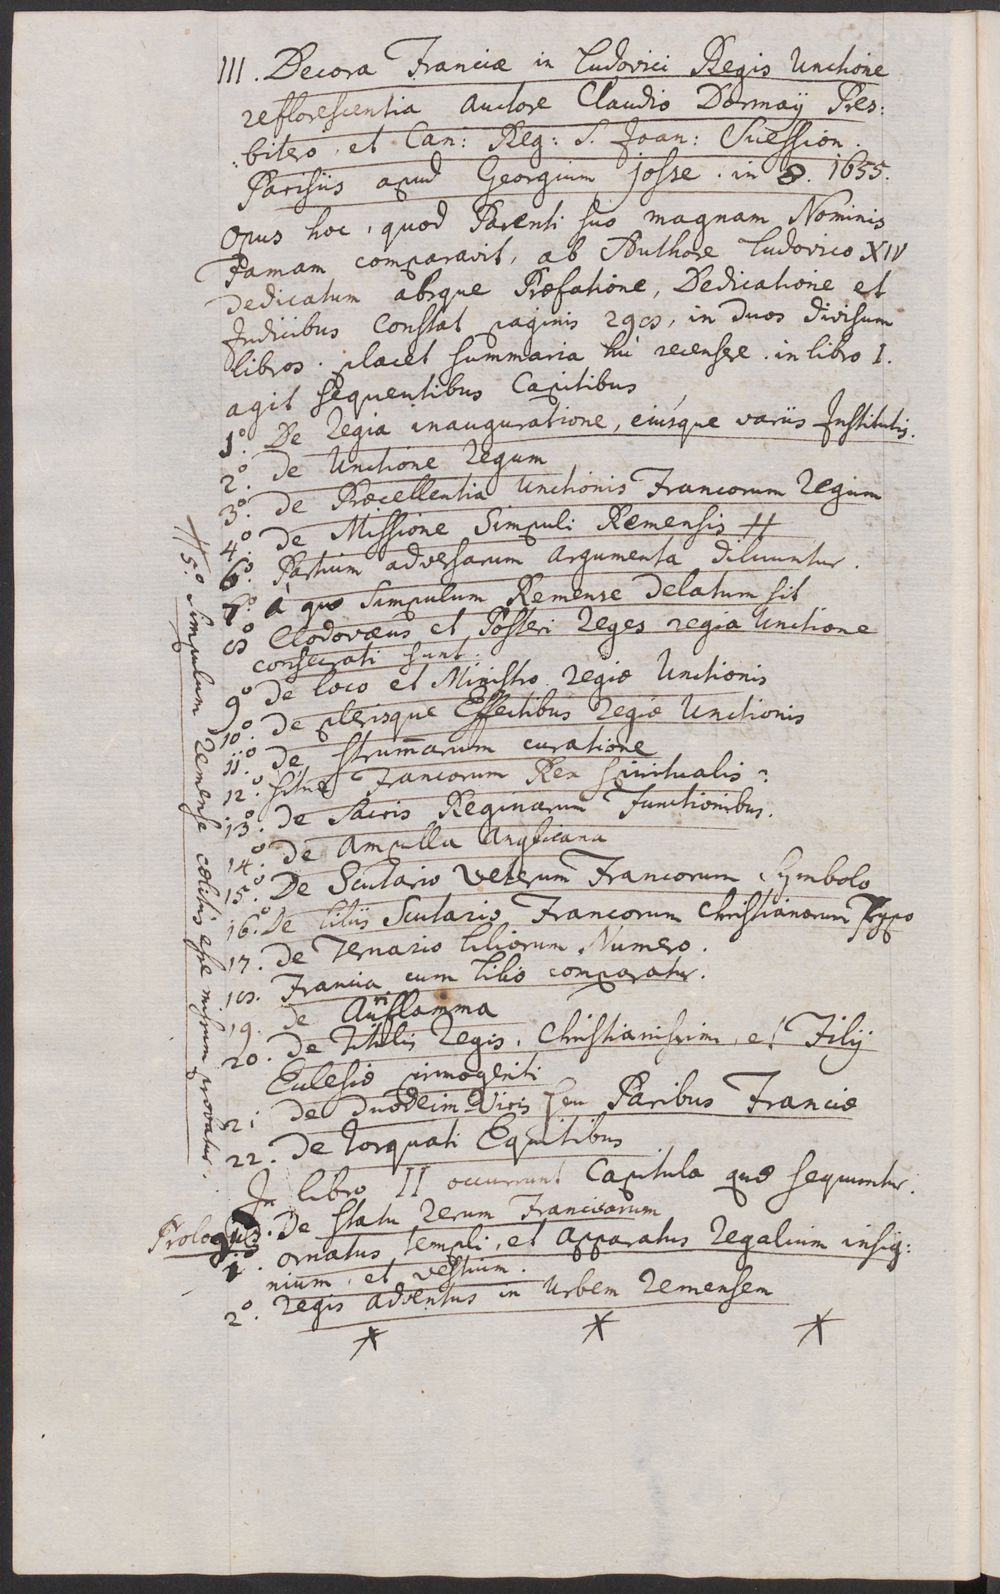 III. Decora Franciæ in Ludovici Regis Unctione
reflorescentia Auctore Claudio Dormaÿ Pres:
:bitero, et Can: Reg: S. Joan: Suession.
Parisiis apud Georgium Josse. in 8. 1655.
Opus hoc, quod Parenti suo magnam Nominis
Famam comparavit, ab Authore Ludovico XIV
dedicatum absque Præfatione, Dedicatione et
Indicibus constat paginis 298, in duos divisum
libros. placet summaria hic recensere. in libro I.
agit sequentibus Capitibus
1º. De regia inauguratione, eiusque variis Institutis.
2º. de Unctione Regum
3º. de Præcellentia Unctionis Francorum Regum
4º. de Missione Simpuli Remensis #
# 5.º Simpulum remense cœlitus esse missum probatur.
6º. Partium adversarum argumenta diluuntur.
7º. à quo Simpulum Remense delatum sit
8º Clodovæus et Posteri Reges regia Unctione
consecrati sunt.
9º de loco et Ministro regiæ Unctionis
10º. de plerisque Effectibus Regiæ Unctionis
11º. de strumarum curatione
12º. sitne Francorum Rex spiritualis?
13º. de Sacris Reginarum functionibus.
14º. de Ampulla Anglicana
15º. De Scutario Veterum Francorum Symbolo
16º. De liliis Scutario Francorum Christianorum Typo
17. de Ternario liliorum Numero.
18. Francia cum lilio comparatur.
19. de Auriflamma
20. De Titulis Regis, Christianissimi, et Filij
Eclesiæ primogeniti
21 de duodecim Viris seu Paribus Franciæ
22. De torquati Equitibus
In libro II occurrunt Capitula quæ sequuntur.
Prologus. De statu rerum Francicarum
1º. ornatus templi, et apparatus regalium insig:
nium, et vestium.
2º. Regis adventus in Urbem Remensem
* * *